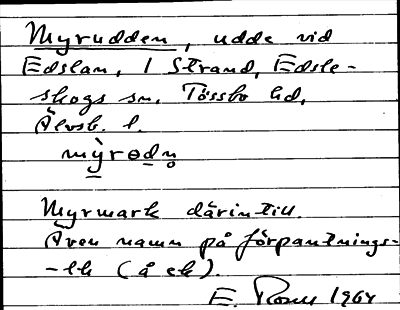 Myrudden, udde vid
Edslan, i Strand, Edsle-
skogs sn, Tössbo hd,
Älvsb. l.
mỳrɵdn̥
Myrmark därintill.
Även namn på förpantnings-
-lh (å ek).
E. 1964